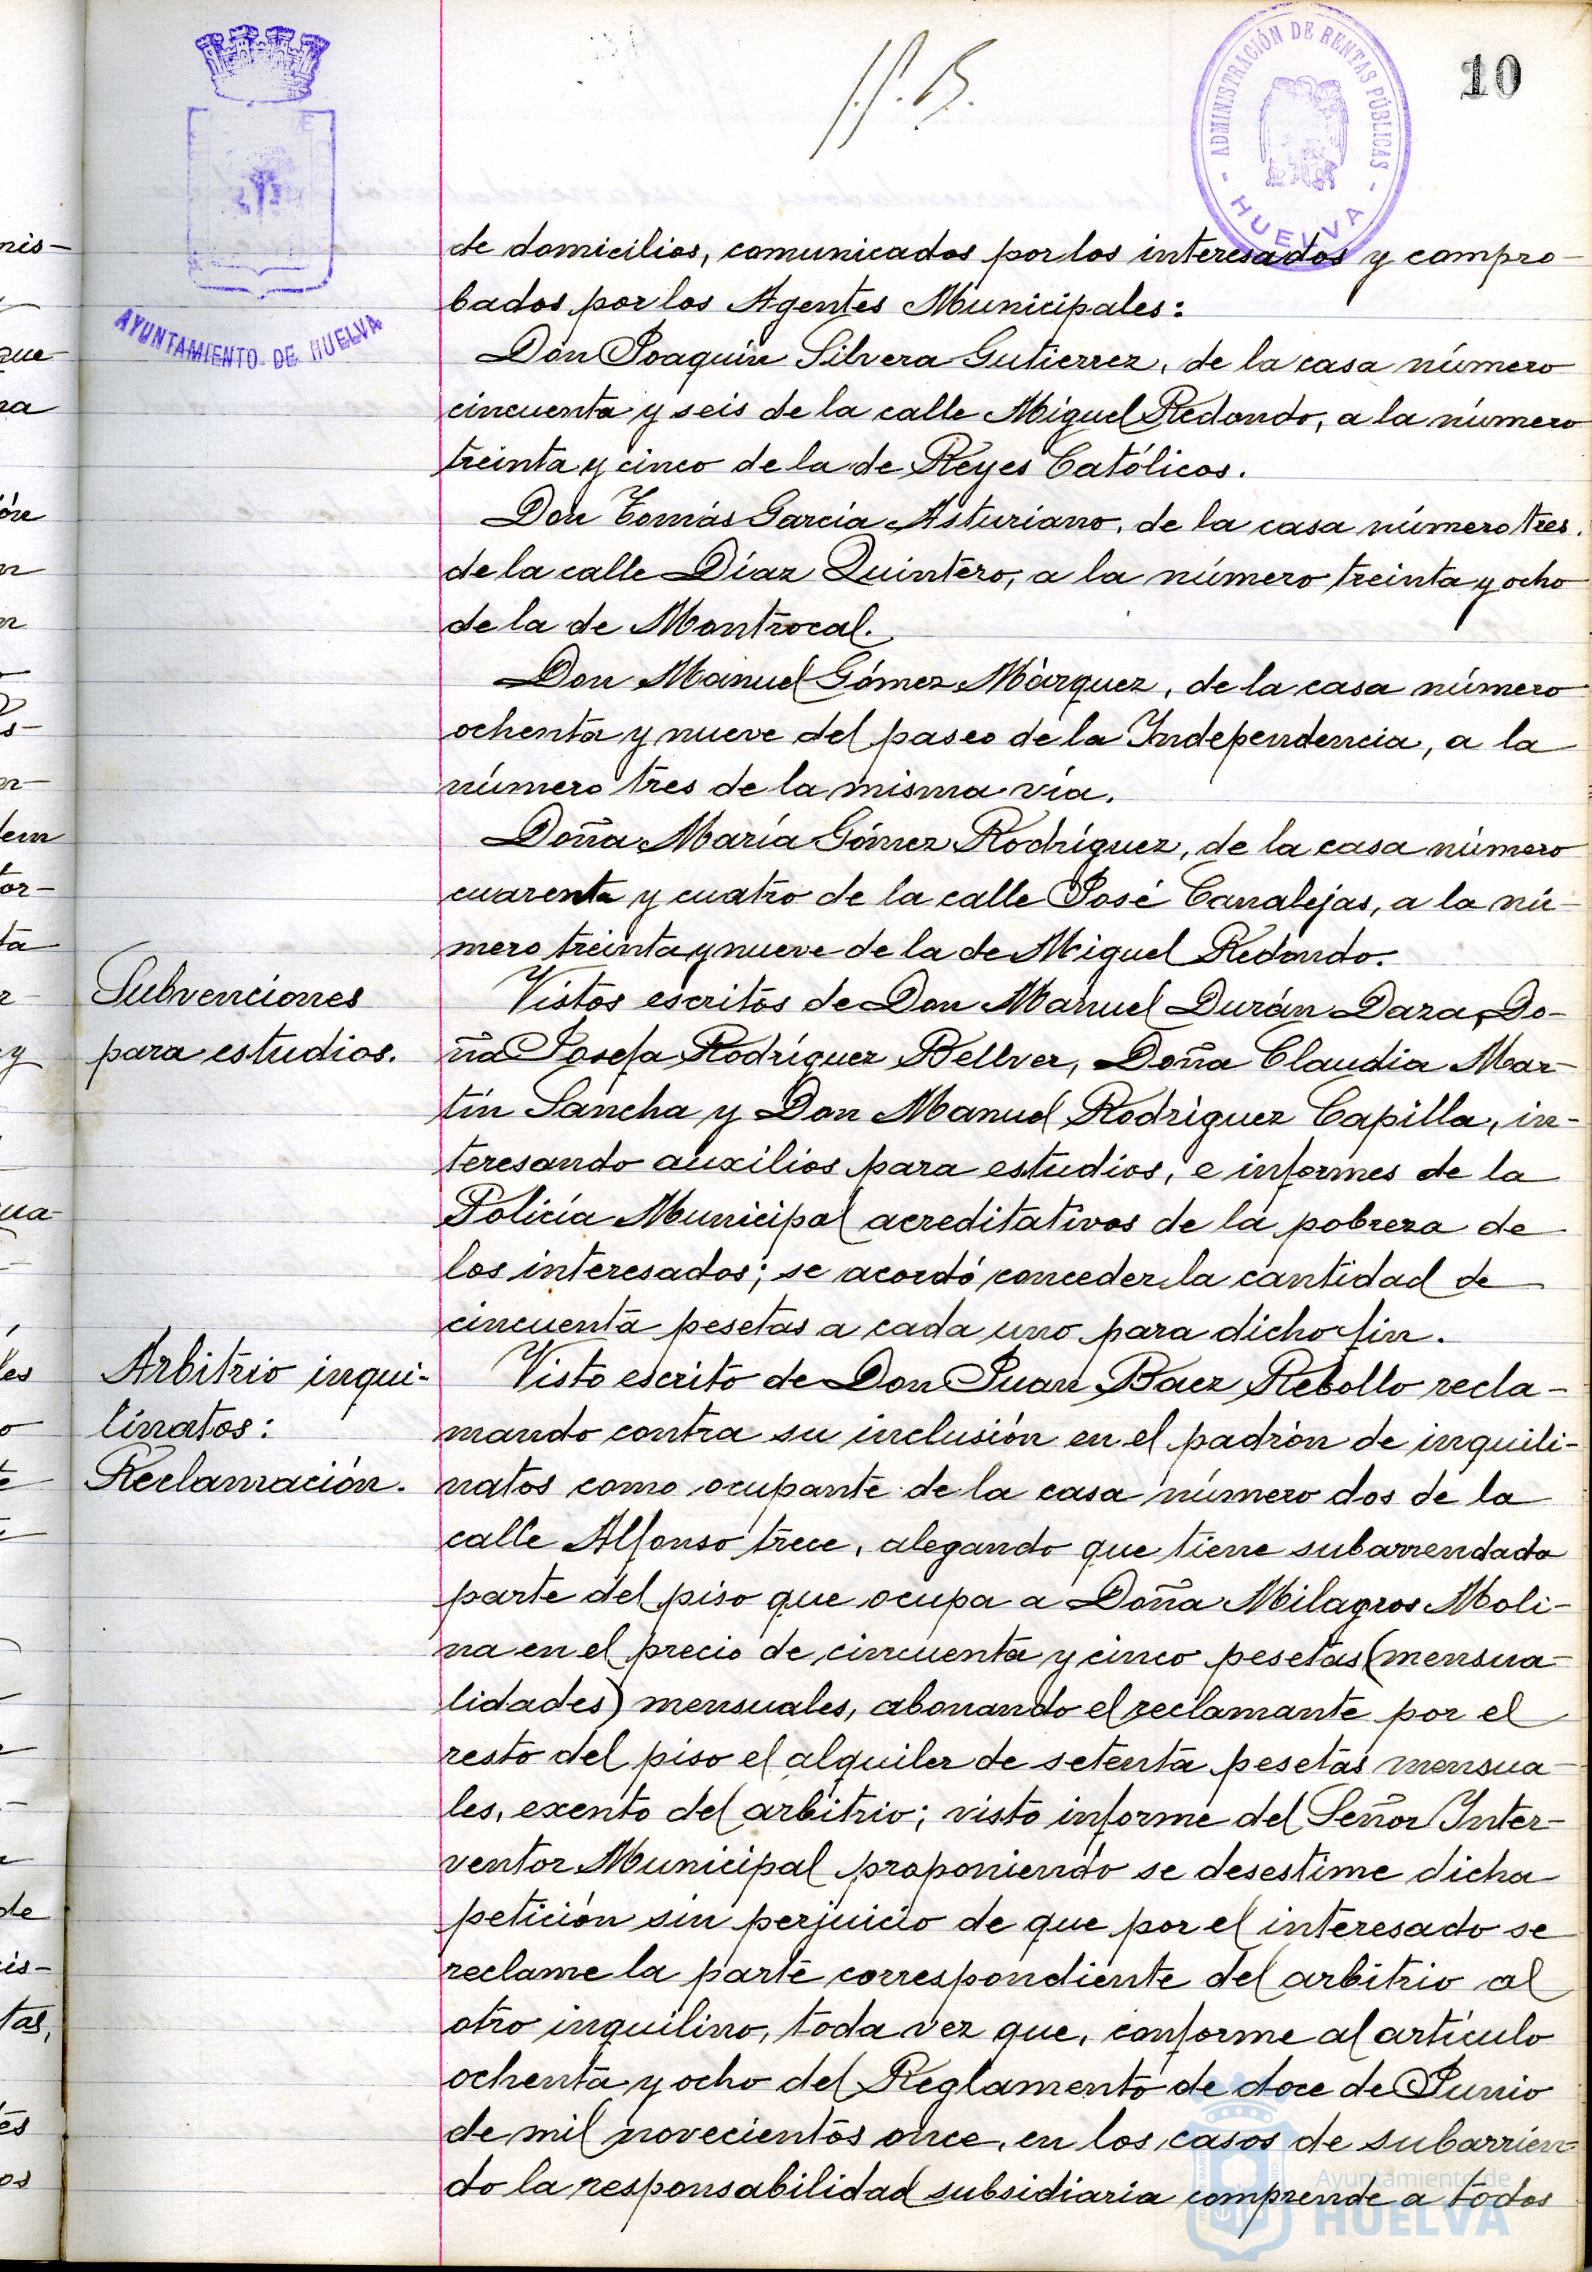 10
ADMINISTRACIÓN DE RENTAS PÚBLICAS
HUELVA
AYUNTAMIENTO DE HUELVA
de domicilios, comunicados por los interesados y compro-
bados por los Agentes Municipales:
Don Joaquín Silvera Gutierrez, de la casa número
cincuenta y seis de la calle Miguel Redondo, a la número
treinta y cinco de la de Reyes Católicos.
Don Tomás García Asturiano, de la casa número tres
de la calle Díaz Quintero, a la número treinta y ocho
de la de Montrocal.
Don Manuel Gómez Márquez, de la casa número
ochenta y nueve del paseo de la Independencia, a la
número tres de la misma vía.
Doña María Gómez Rodríguez, de la casa número
cuarenta y cuatro de la calle José Canalejas, a la nú-
mero treinta y nueve de la de Miguel Redondo.
Subvenciones
para estudios.
Vistos escritos de Don Manuel Durán Daza, Do-
ña Josefa Rodríguez Bellver, Doña Claudia Mar-
tín Sancha y Don Manuel Rodríguez Capilla, in-
teresando auxilios para estudios, e informes de la
Policía Municipal acreditativos de la pobreza de
los interesados; se acordó conceder la cantidad de
cincuenta pesetas a cada uno para dicho fin.
Arbitrio inqui-
linatos:
Reclamación.
Visto escrito de Don Juan Baez Rebollo recla-
mando contra su inclusión en el padrón de inquili-
natos como ocupante de la casa número dos de la
calle Alfonso trece, alegando que tiene subarrendado
parte del piso que ocupa a Doña Milagros Moli-
na en el precio de cincuenta y cinco pesetas (mensua-
lidades) mensuales, abonando el reclamante por el
resto del piso el alquiler de setenta pesetas mensua-
les, exento del arbitrio; visto informe del Señor Inter-
ventor Municipal proponiendo se desestime dicha
petición sin perjuicio de que por el interesado se
reclame la parte correspondiente del arbitrio al
otro inquilino, toda vez que, conforme al artículo
ochenta y ocho del Reglamento de doce de Junio
de mil novecientos once, en los casos de subarrien-
do la responsabilidad subsidiaria comprende a todos
Ayuntamiento de
HUELVA